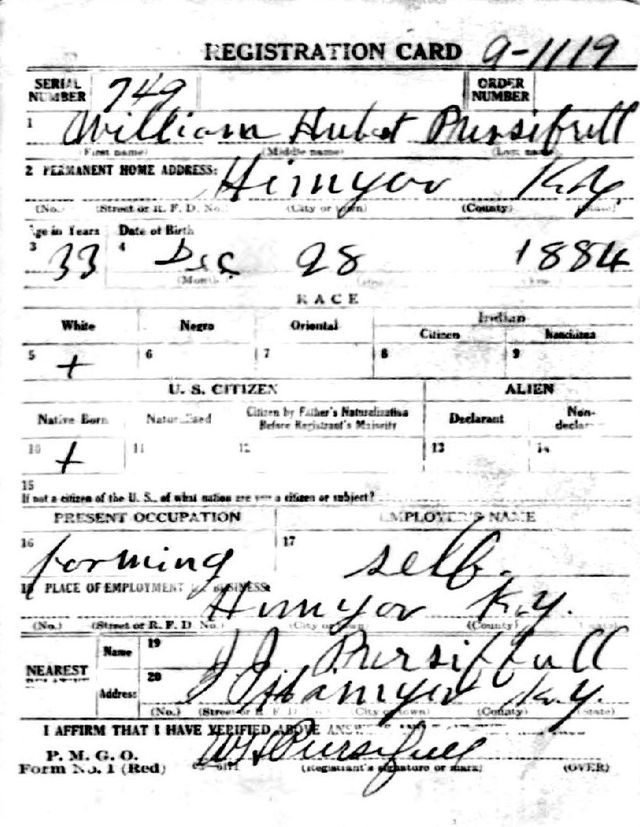 REGISTRATION CARD 9-1119
SERIAL NUMBER 749 ORDER NUMBER
1 William Hubert Pursifull
(First name) (Middle name) (Last name)
2 PERMANENT HOME ADDRESS: Himyar Ky.
(No.) (Street or R. F. D. No.) (City or town) (County) (State)
Age in Years Date of Birth
3 33 4 Dec 28 1884
(Month)
RACE
White Negro Oriental Indian
Citizen Noncitizen
5 + 6 7 8 9
U. S. CITIZEN ALIEN
Native Born Naturalized Citizen by Father's Naturalization Before Registrant's Majority Declarant Non-declarant
10 + 11 12 13 14
15
If not a citizen of the U. S., of what nation are you a citizen or subject?
PRESENT OCCUPATION EMPLOYER'S NAME
16 forming 17 self.
18 PLACE OF EMPLOYMENT OR BUSINESS:
Himyar Ky.
(No.) (Street or R. F. D. No.) (City or town) (County) (State)
NEAREST Name 19 Pursiffull
Address 20 Himyar Ky.
(No.) (Street or R. F. D. No.) (City or town) (County) (State)
I AFFIRM THAT I HAVE VERIFIED ABOVE
P. M. G. O.
Form No. 1 (Red) WH Pursifull
(Registrant's signature or mark) (OVER)